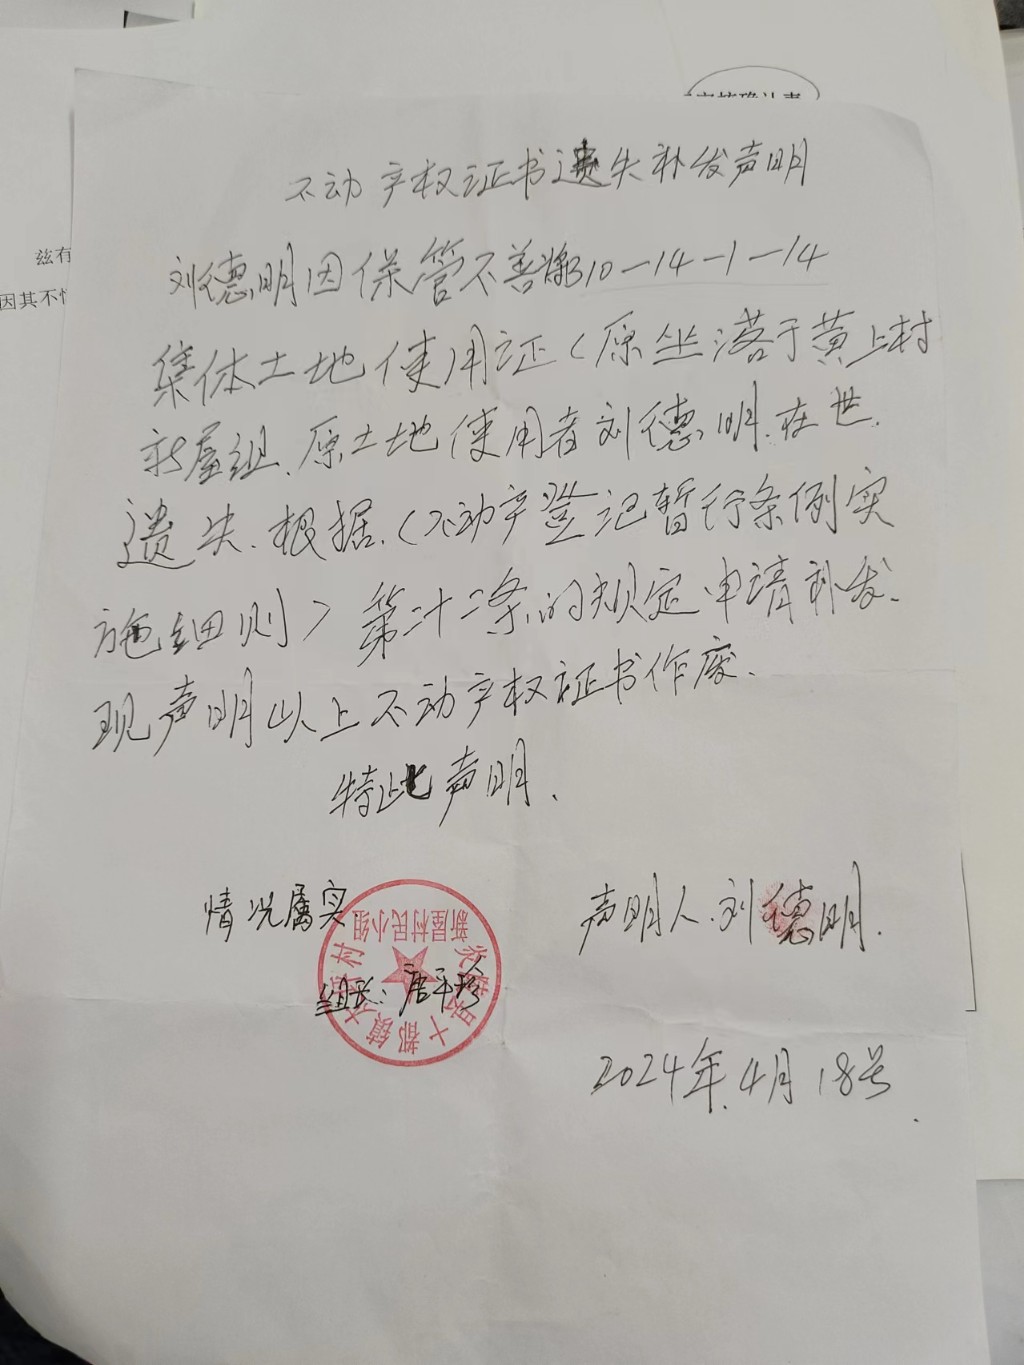 审核确认表
兹有
因其不慎
不动产权证书遗失补发声明
刘德明因保管不善将310-14-1-14
集体土地使用证(原坐落于黄上村
新屋组、原土地使用者刘德明、在世、
遗失、根据、〈不动产登记暂行条例实
施细则〉第二十二条的规定申请补发、
现声明以上不动产权证书作废、
特此声明、
情况属实
声明人、刘德明、
组长:唐平珍
新屋村民小组
十都镇
村
2024年、4月18号